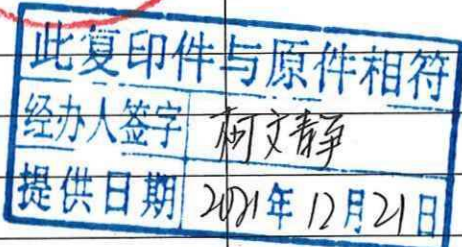 此复印件与原件相符
经办人签字 柯文静
提供日期 2021年12月21日